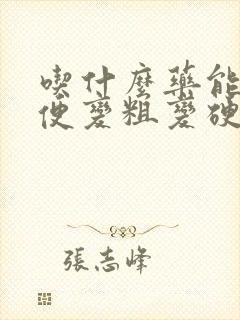 喫什麼藥能
使變粗變硬
張志峰